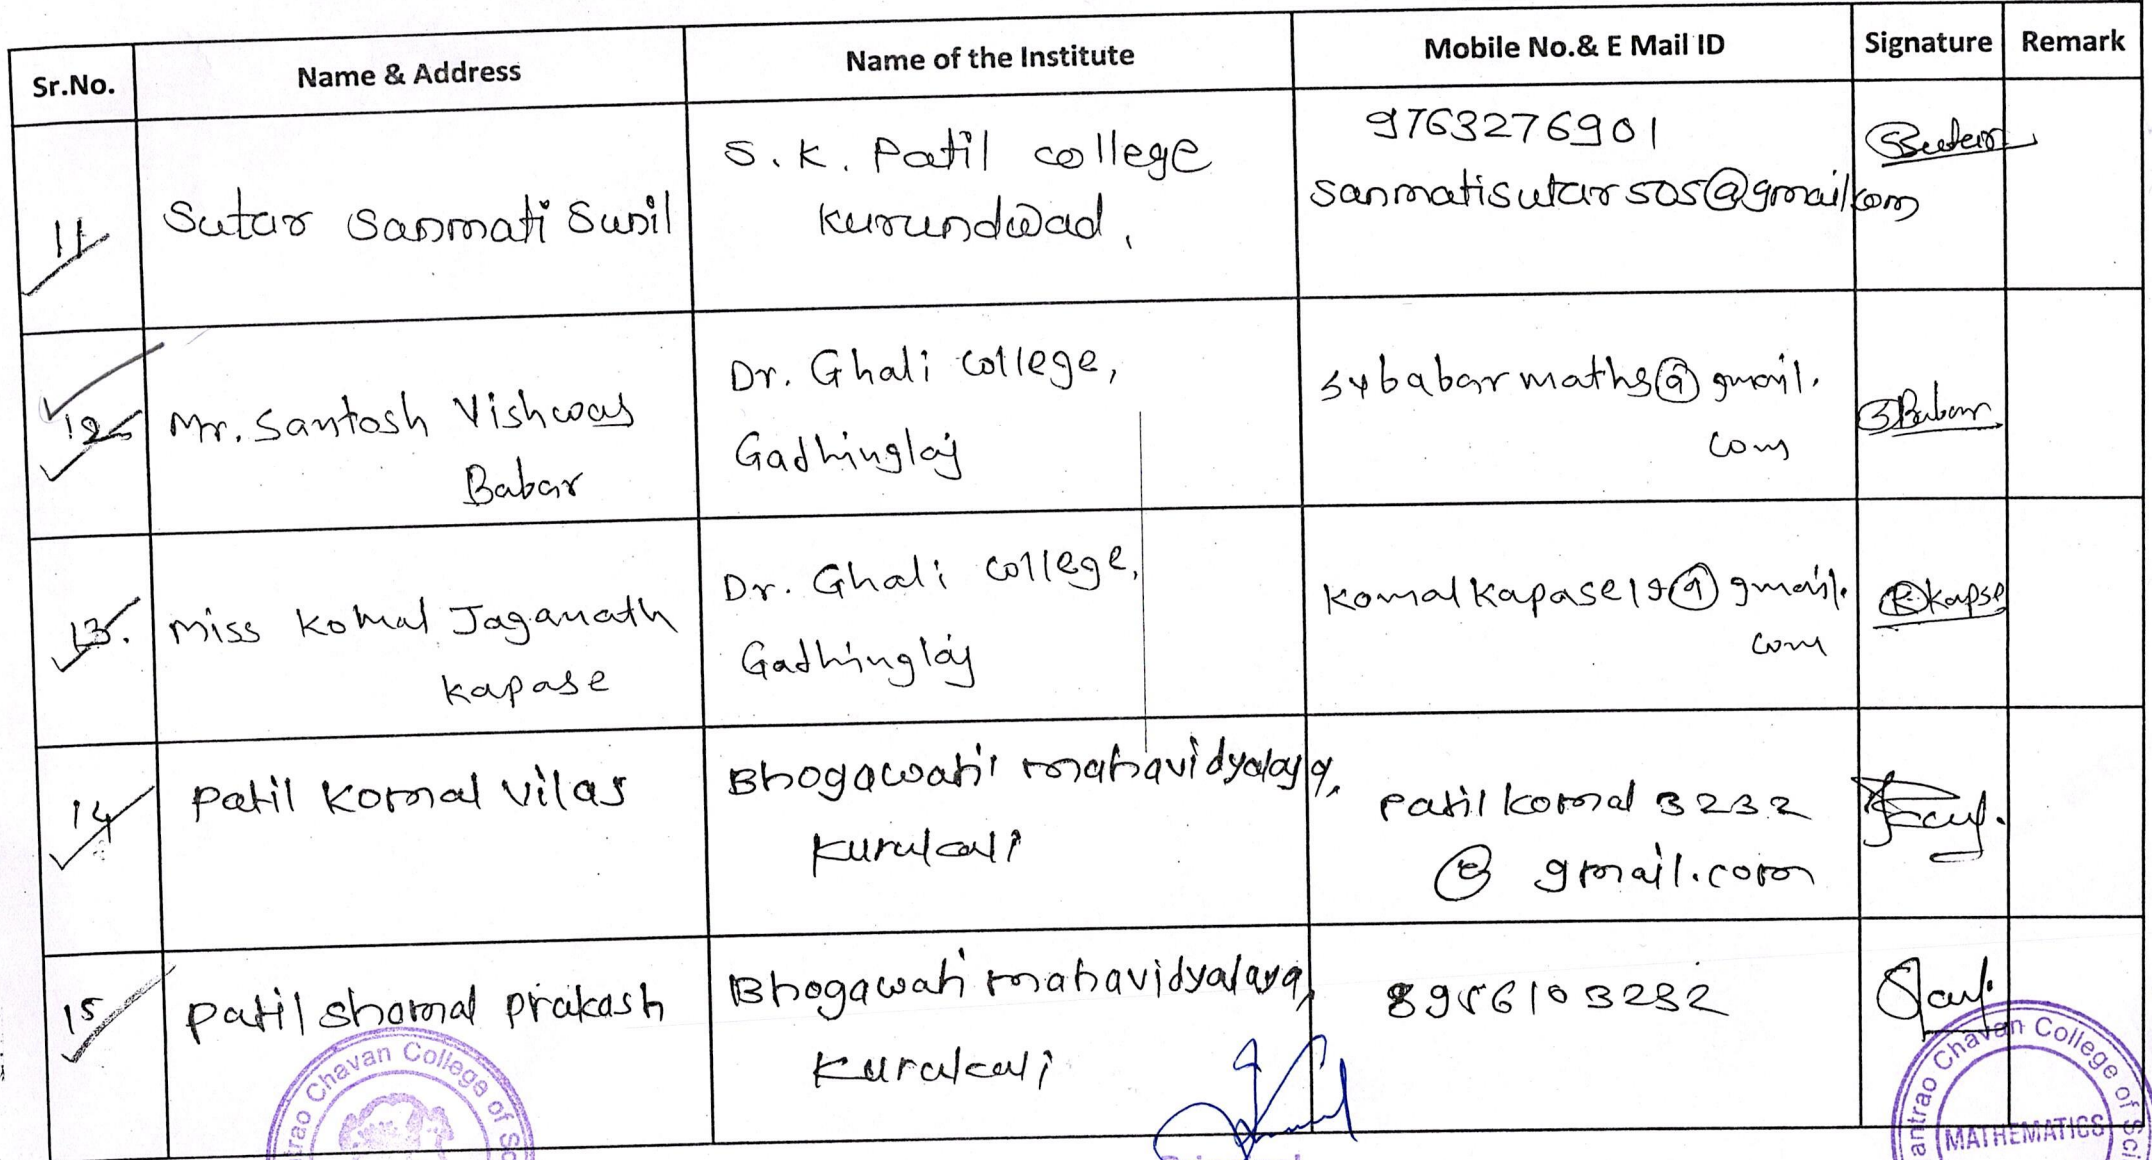 Sr.No. Name & Address Name of the Institute Mobile No.& E Mail ID Signature Remark
11 Sutar Sanmati Sunil
S. K. Patil college
Kurundwad,
9763276901
sanmatisutar505@gmail.com
12 Mr. Santosh Vishwas
Babar
Dr. Ghali College,
Gadhinglaj
babarmaths@gmail.
com
SBabar
13. Miss Komal Jaganath
Kapase
Dr. Ghali College,
Gadhinglaj
Komalkapase19@gmail.
com
Kapse
14 Patil Komal Vilas
Bhogawati mahavidyalaya,
Kurukali
Patilkomal3232
@gmail.com
15 Patil shamal prakash
Bhogawati mahavidyalaya,
Kurukali
8956103232
Chavan College of
Chavan College of Sci
MATHEMATICS